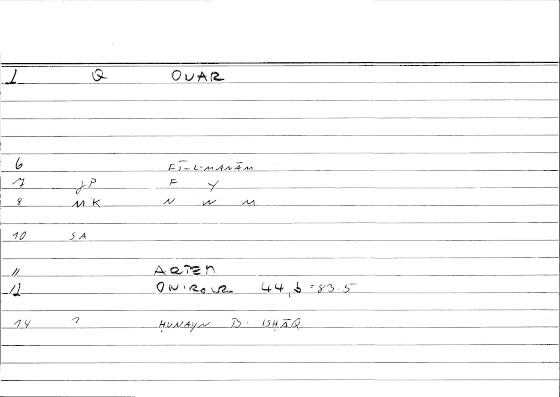 1 Q OVAR
6 FĪ-L-MANĀM
7 JP F Y
8 MK N W M
10 SA
11 ARTEM
12 ONIROCR 44, b = 83.5
14 ? ḤUNAYN B. ISḤĀQ